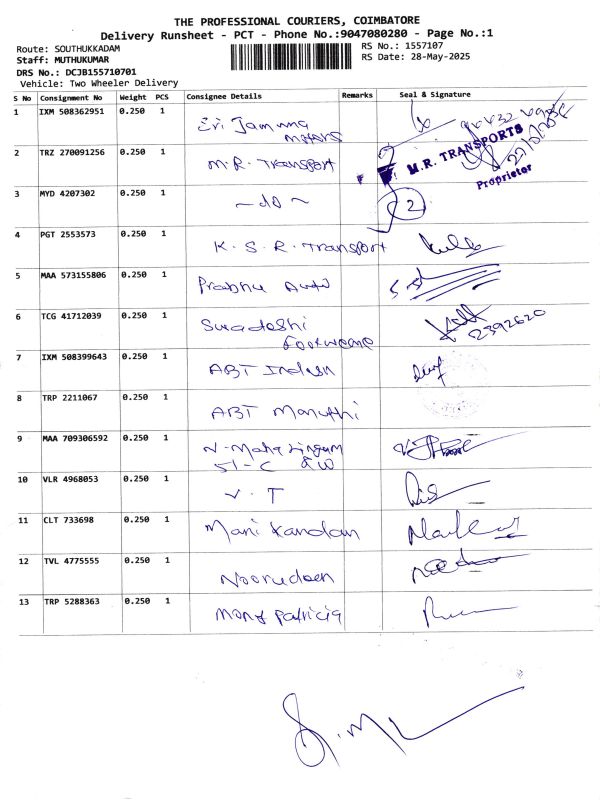 THE PROFESSIONAL COURIERS, COIMBATORE
Delivery Runsheet - PCT - Phone No.:9047080280 - Page No.:1
Route: SOUTHUKKADAM
RS No.: 1557107
Staff: MUTHUKUMAR
RS Date: 28-May-2025
DRS No.: DCJB155710701
Vehicle: Two Wheeler Delivery
S No Consignment No Weight PCS Consignee Details Remarks Seal & Signature
1 IXM 508362951 0.250 1
motors
2 TRZ 270091256 0.250 1 M.R. Transport
M.R. TRANSPORTS
Proprietor
3 MYD 4207302 0.250 1 -do- 2
4 PGT 2553573 0.250 1 K.S.R. Transport
5 MAA 573155806 0.250 1 Prabhu Auto
6 TCG 41712039 0.250 1 Swadeshi
Footweare
7 IXM 508399643 0.250 1 ABT
8 TRP 2211067 0.250 1 ABT Maruthi
9 MAA 709306592 0.250 1
51-C
10 VLR 4968053 0.250 1 V.T
11 CLT 733698 0.250 1 Mani Kandan
12 TVL 4775555 0.250 1 Noorudeen
13 TRP 5288363 0.250 1 Patricia